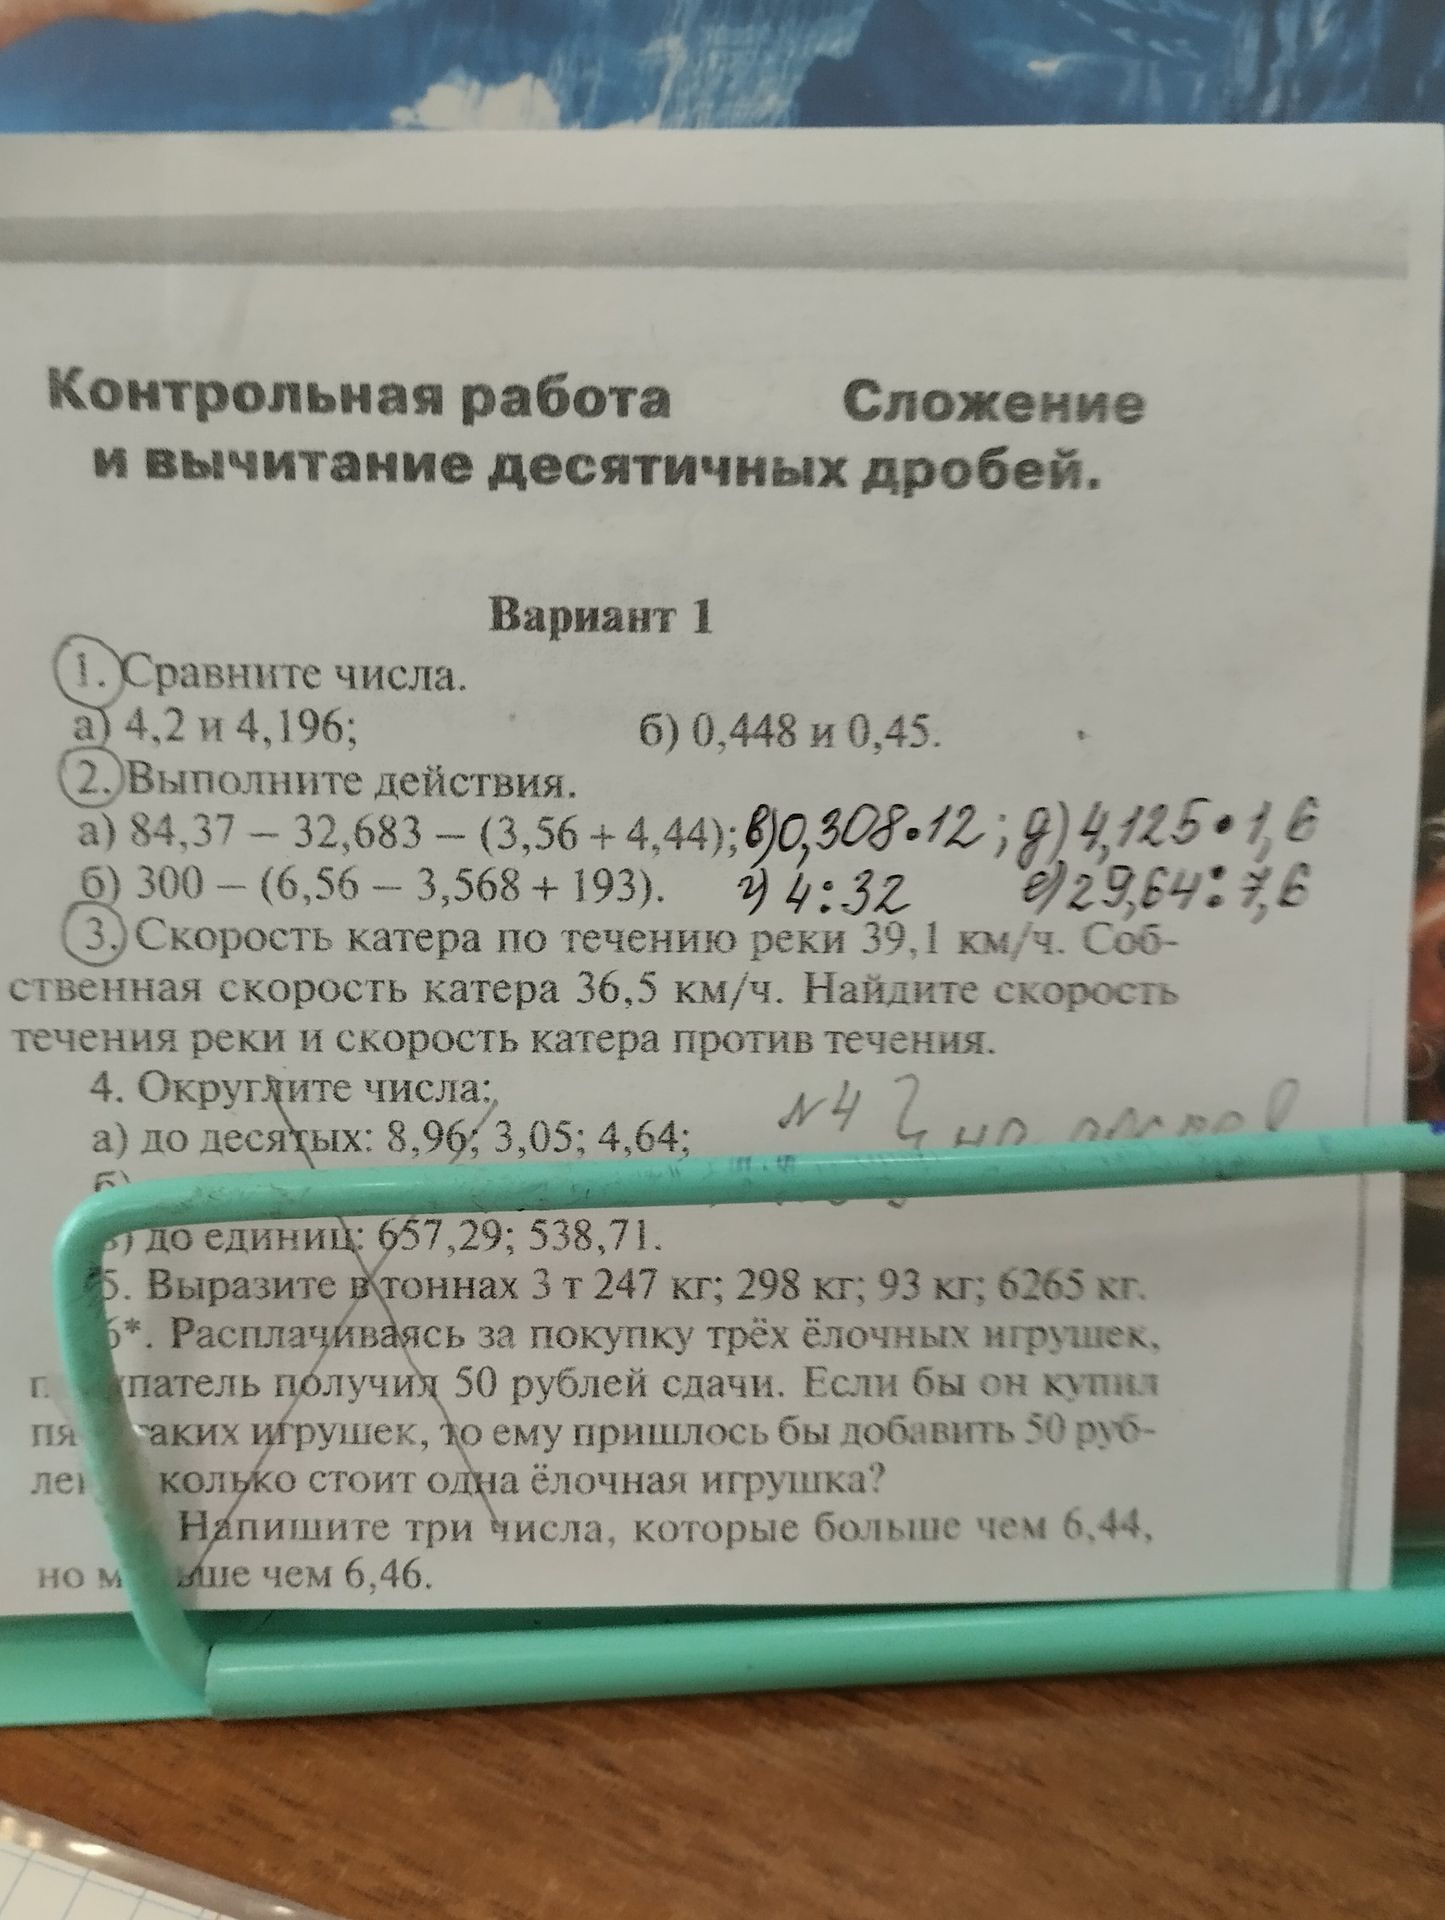 Контрольная работа Сложение
и вычитание десятичных дробей.
Вариант 1
1. Сравните числа.
а) 4,2 и 4,196; б) 0,448 и 0,45.
2. Выполните действия.
а) 84,37 – 32,683 – (3,56 + 4,44); в) 0,308•12; д) 4,125•1,6
б) 300 – (6,56 – 3,568 + 193). г) 4:32 е) 29,64:7,6
3. Скорость катера по течению реки 39,1 км/ч. Соб-
ственная скорость катера 36,5 км/ч. Найдите скорость
течения реки и скорость катера против течения.
4. Округлите числа:
а) до десятых: 8,96; 3,05; 4,64; №4
б)
в) до единиц: 657,29; 538,71.
5. Выразите в тоннах 3 т 247 кг; 298 кг; 93 кг; 6265 кг.
6*. Расплачиваясь за покупку трёх ёлочных игрушек,
получил 50 рублей сдачи. Если бы он купил
таких игрушек, то ему пришлось бы добавить 50 руб-
стоит одна ёлочная игрушка?
Напишите три числа, которые больше чем 6,44,
но чем 6,46.